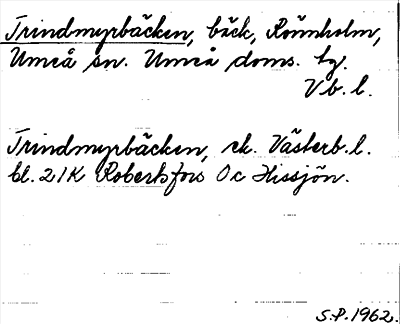 Trindmyrbäcken, bäck, Rönnholm,
Umeå sn. Umeå doms. tg.
Vb. l.
Trindmyrbäcken, ek. Västerb. l.
bl. 21K Robertsfors Oc Hissjön.
S.P. 1962.